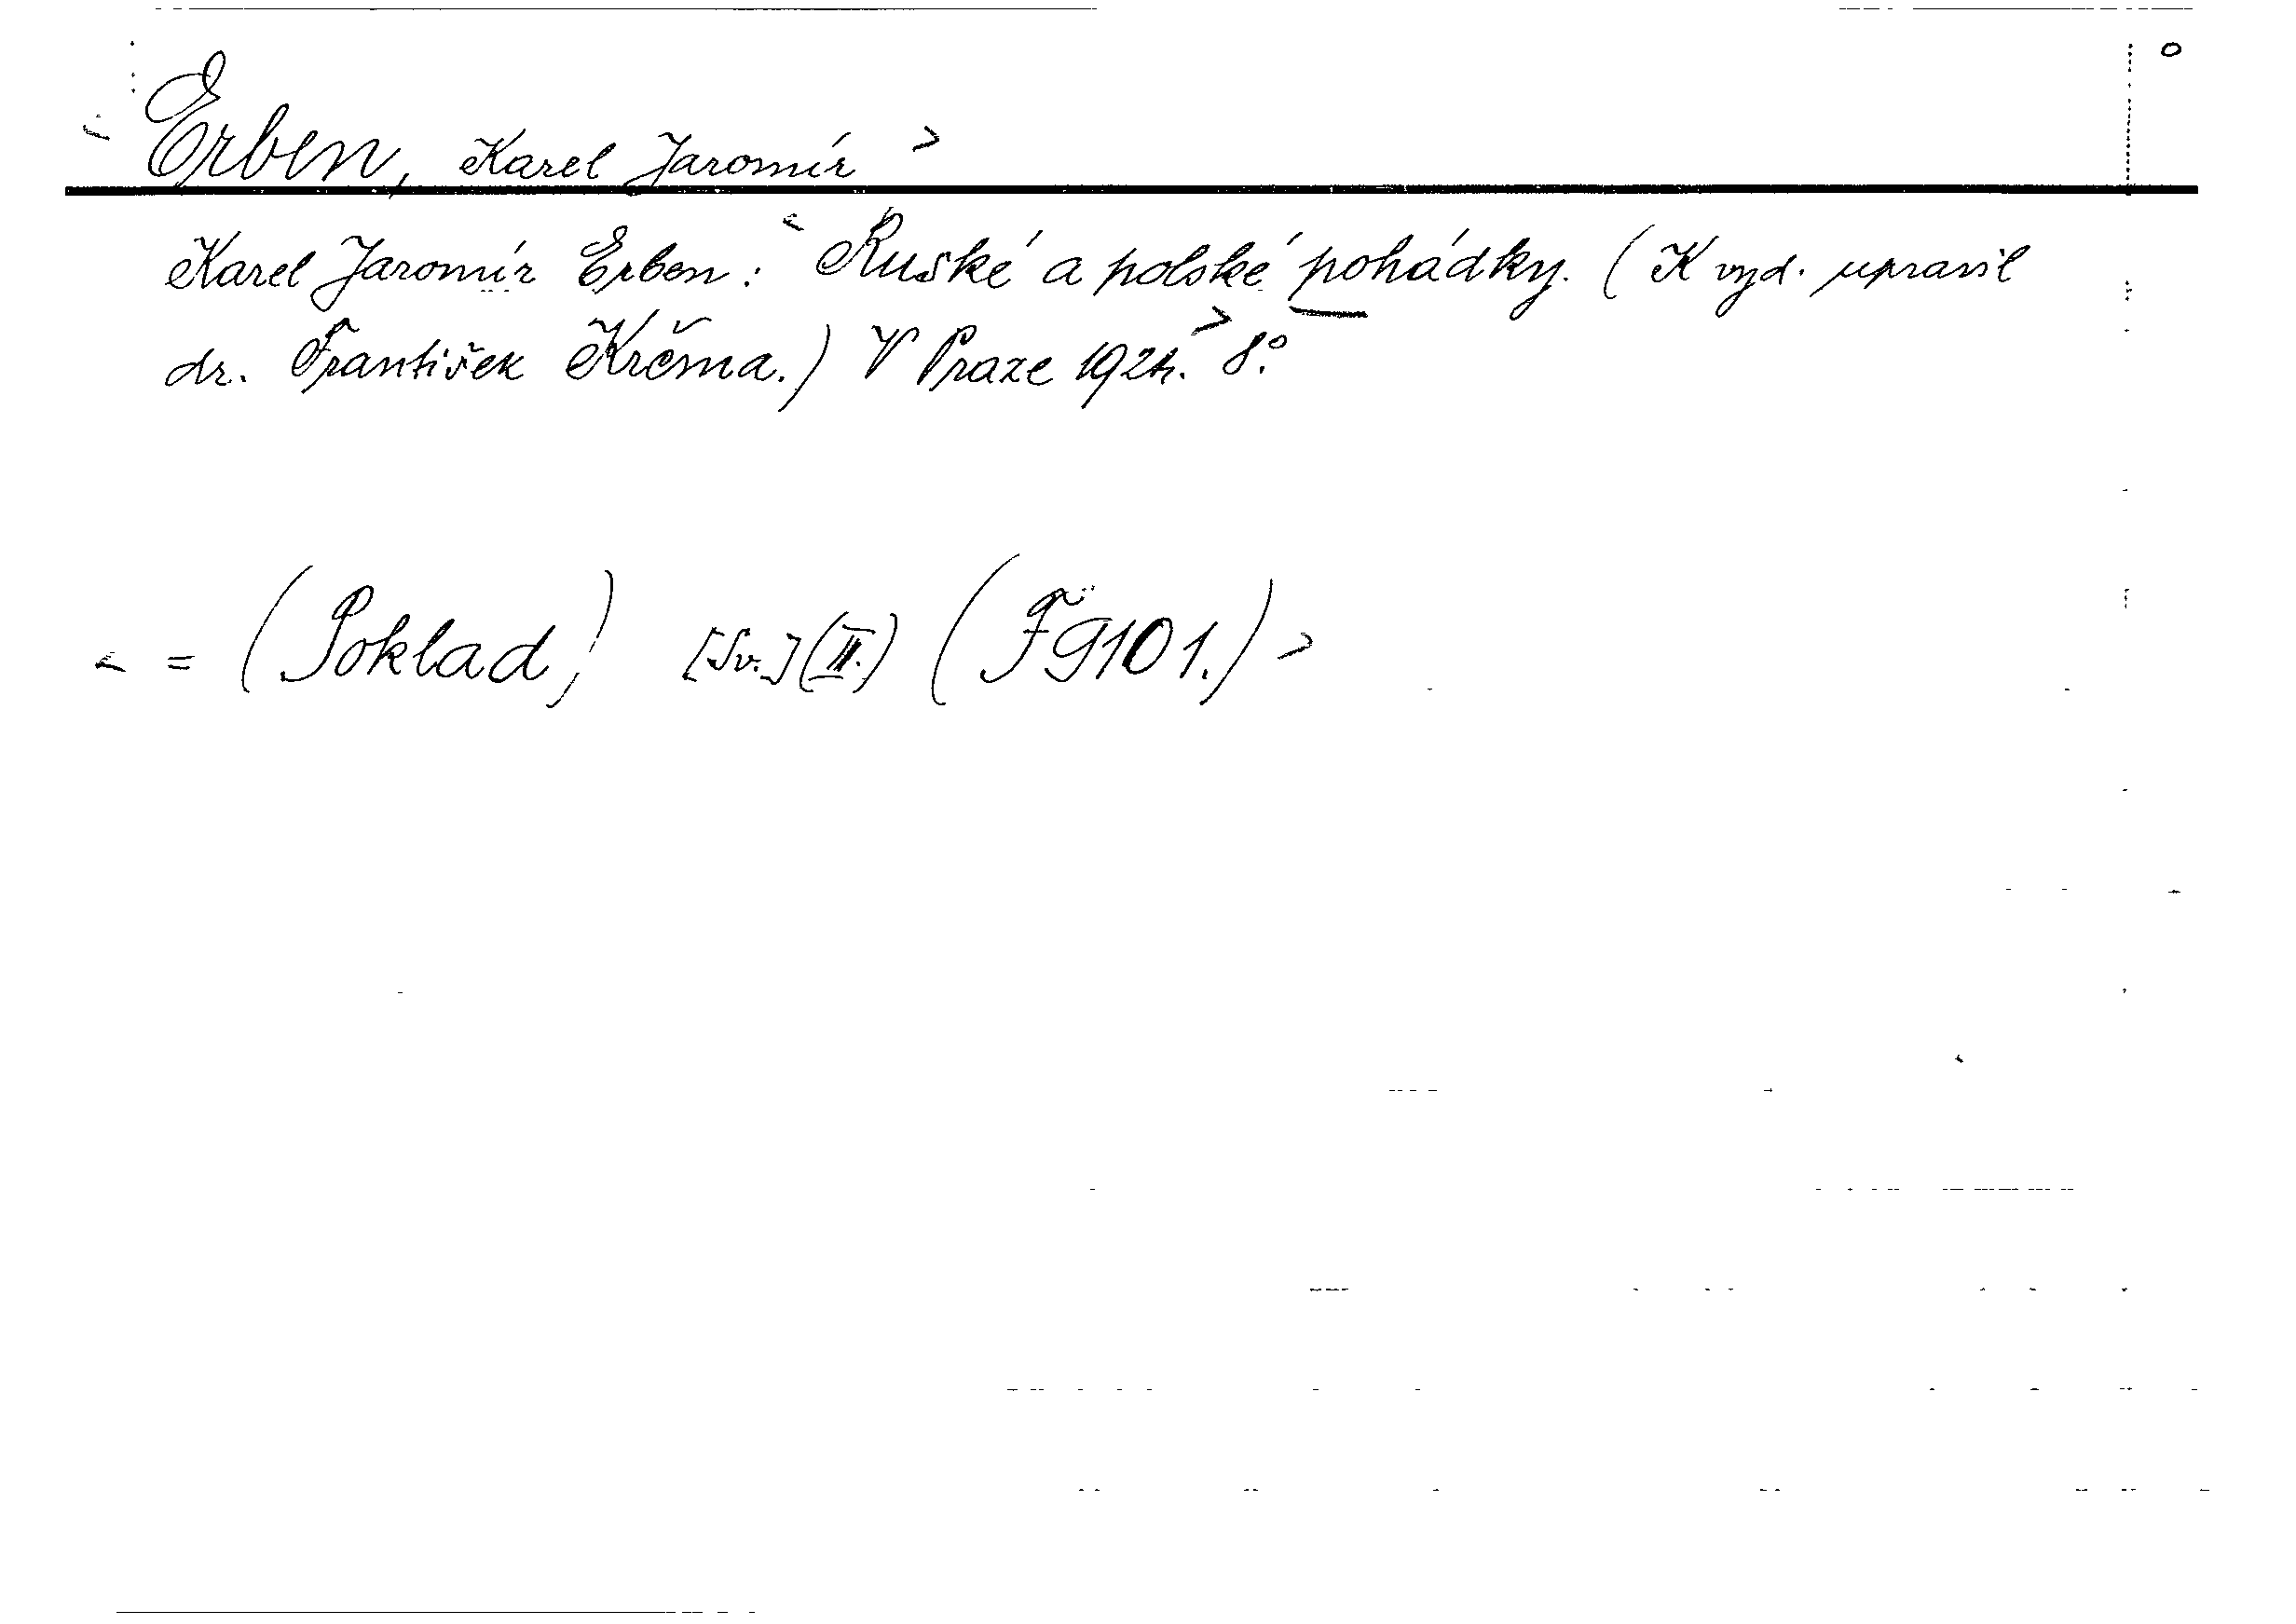 < Erben, Karel Jaromír >
Karel Jaromír Erben: < Ruské a polské pohádky. (K vyd. upravil
dr. František Krčma.) V Praze 1924. > 8°.
< = (Poklad) [Sv.] (II.) (F 9101.) >